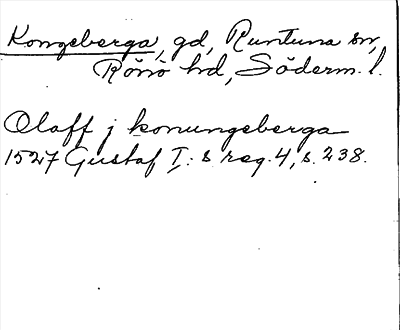 Kongeberga, gd, Runtuna sn,
Rönö hd, Söderm. l.
Olaff j konungeberga
1527 Gustaf I:s reg. 4, s. 238.